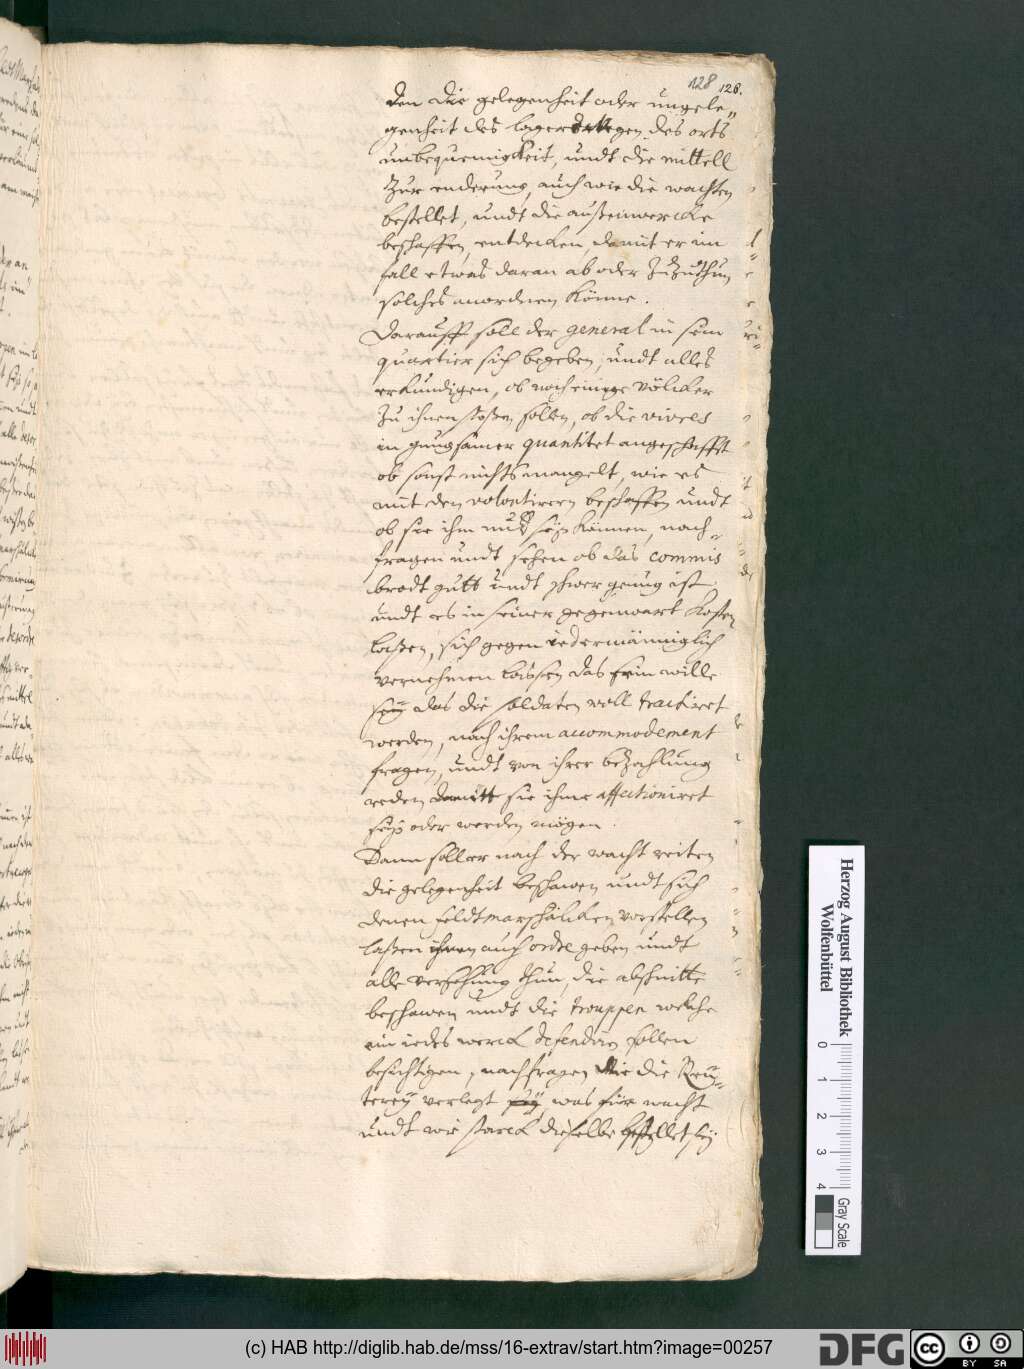 128 126.
den die gelegenheit oder ungele„
genheit des lagers wegen des orts
unbequemigkeit, undt die mittell
zur enderung, auch wie die wachten
bestellet, undt die außenwercke
beschaffen, entdecken, damit er im
fall etwas daran ab oder zuzuthun
solches anordnen könne.
Darauff soll der general in sein
quartier sich begeben, undt alles
erkundigen, ob noch einige völcker
zu ihnen stoßen sollen, ob die vivres
in gnugsamer quantitet angeschafft
ob sonst nichts mangelt, wie es
mit den volontiren beschaffen undt
ob sie ihm nutz sein können, nach„
fragen undt sehen ob das commis
brodt gutt undt schwer genug ist
undt es in seiner gegenwart kosten
laßen, sich gegen iedermänniglich
vernehmen lassen das sein wille
sey das die soldaten woll tractiret
werden, nach ihrem accommodement
fragen, undt von ihrer bezahlung
reden damitt sie ihme affectioniret
sein oder werden mögen.
Dann soll er nach der wacht reiten
die gelegenheit beschawen undt sich
denen feldtmarschälcken vorstellen
laßen ihnen auch ordre geben undt
alle versehung thun, die abschnitte
beschawen undt die trouppen welche
ein iedes werck defendiren sollen
besichtigen, nachfragen wie die Reu„
terey verlegt sey, was für wacht
undt wie starck dieselbe bestellet sey
Herzog August Bibliothek
Wolfenbüttel
0 1 2 3 4
Gray Scale
(c) HAB http://diglib.hab.de/mss/16-extrav/start.htm?image=00257
DFG
cc
BY SA